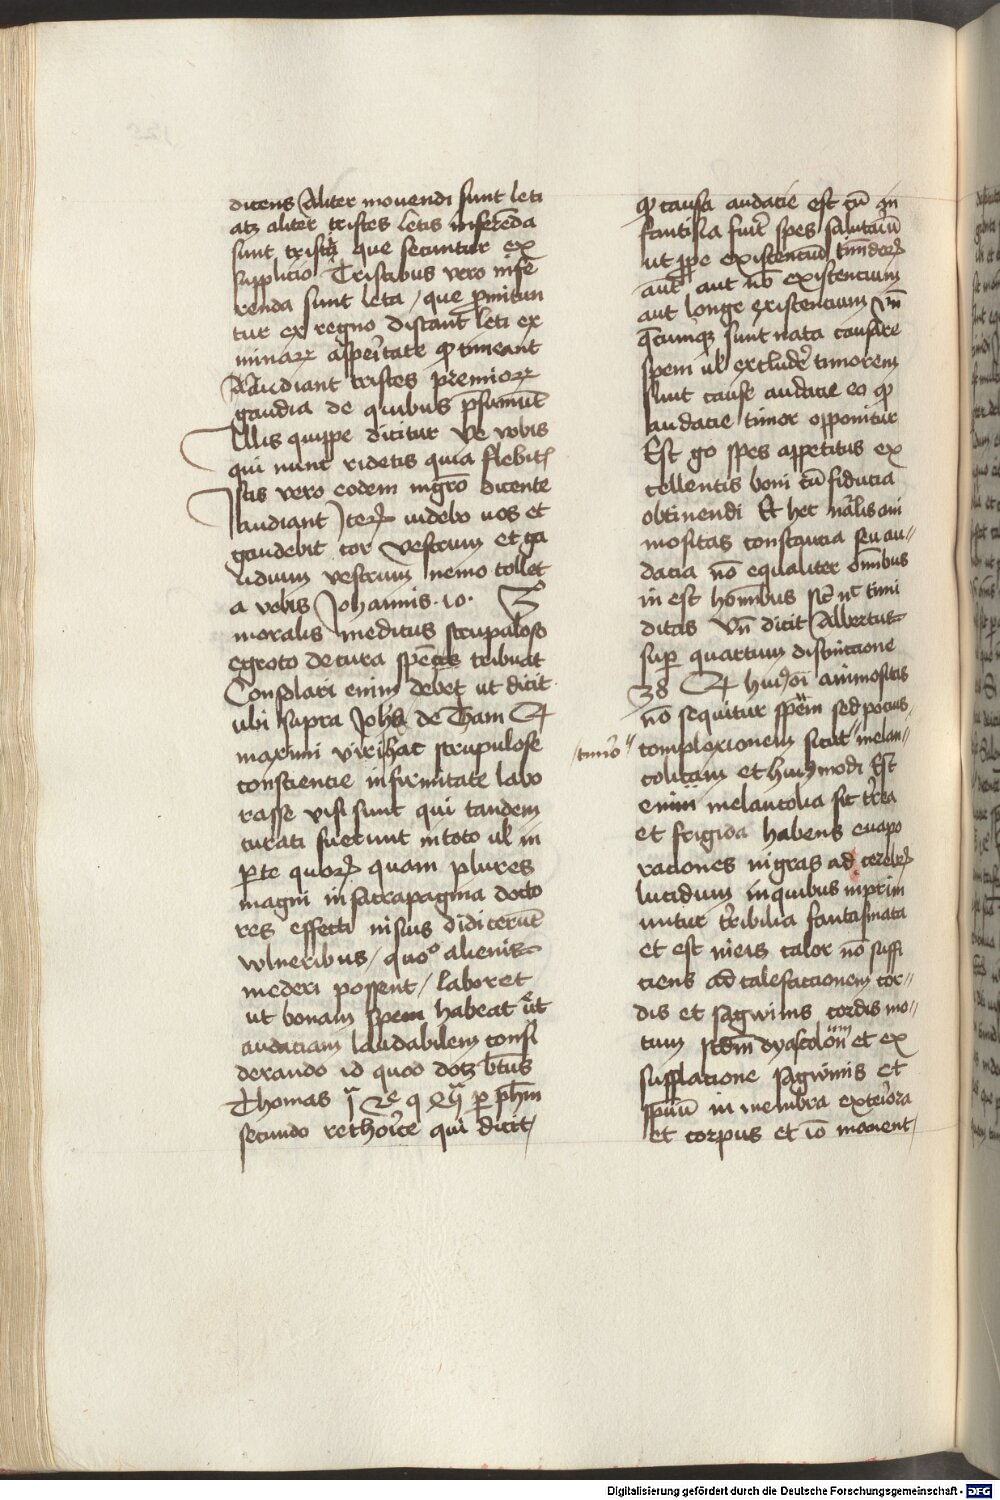 dicens Aliter movendi sunt leti
atz aliter tristes letis inferēda
sunt tristia que secuntur ex
supplicio Tristibus vero infe
renda sunt leta / que ꝓmitun
tur ex regno discant leti ex
minaꝝ asp̄itate ꝙ timeant
Audiant tristes premioꝝ
gaudia de quibus p̄sumūt
Illis quippe dicitur Ve vobis
qui nunc ridetis quia flebit̄
Isti vero eodem mgr̄o dicente
audiant Iteꝝ videbo vos et
gaudebit cor vestrum et ga
udium vestrum nemo tollet
a vobis Johannis .10. 3º
moralis medicus scrupuloso
egroto de cura spēm tribuat
Consolari enim debet ut dicit
ubi supra Joh̄s de Tham Qꝫ
maximi viri hac scrupulose
consciencie infirmitate labo
rasse visi sunt qui tandem
curati fuerunt in toto ul in
ꝑte quoꝝ quam plures
magni in sacra pagina docto
res effecti in suis didicerūt
vulneribus / quoº alienis
mederi possent / laboret
ut bonam spem habeat et
audaciam laudabilem consi
derando id quod docet btūs
Thomas
secundo rethorice qui dicit /
ꝙ causa audacie est cū in
fantasia fuit spes salutariū
ut ꝓpe existencium timendoꝝ
aut aut nō existencium
aut longe existencium Vn̄
q̄cumqꝫ sunt nata causare
spem ul excludere timorem
sunt cause audacie eo ꝙ
audacie timor opponitur
Est go spes appetitus ex
cellentis boni cū fiducia
obtinendi Et hec nālis ani
mositas constancia seu au//
dacia nō equaliter om̄ibus
in est hom̄ibus sic nc timi
ditas Vn̄ dicit Albertus
sup quartum distinccione
38 Qꝫ huiꝰmōi animositas
nō sequitur spēm sed pocius
/timiō// complexionem sicut // melan//
colicam et huiꝰmodi Est
enim melancolia sic trea
et frigida habens evapo
raciones nigras ad cerebꝝ
lucidum in quibus inprim
untur tribilia fantasmata
et est in eis calor nō suffi
ciens ad calefaccionem cor//
dis et sagwinis cordis mo//
tum scd̄m dyascolon̄ et ex
sufflacione sagwinis et
spūū in membra exteriora
et corpus et iō movent /
Digitalisierung gefördert durch die Deutsche Forschungsgemeinschaft - DFG